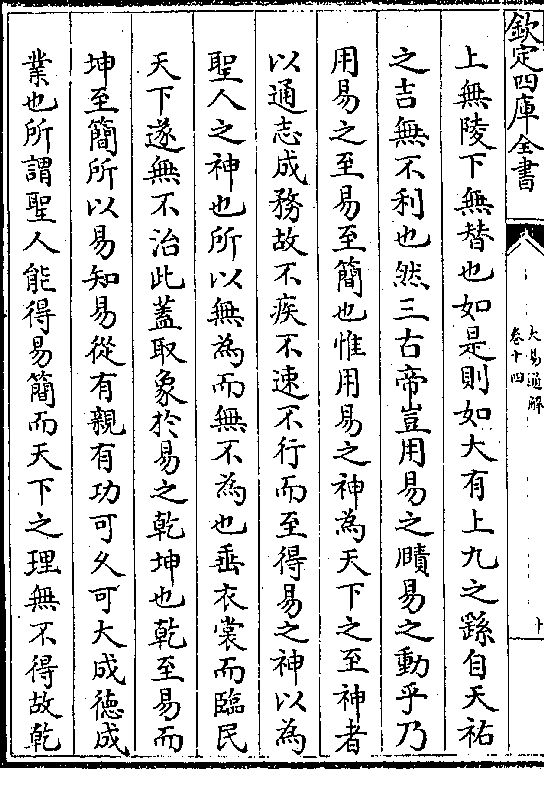 欽定四庫全書
大易通解
卷十四
上無陵下無替也如是則如大有上九之繇自天祐
之吉無不利也然三古帝豈用易之賾易之動乎乃
用易之至易至簡也惟用易之神為天下之至神者
以通志成務故不疾不速不行而至得易之神以為
聖人之神也所以無為而無不為也垂衣裳而臨民
天下遂無不治此蓋取象於易之乾坤也乾至易而
坤至簡所以易知易從有親有功可久可大成德成
業也所謂聖人能得易簡而天下之理無不得故乾